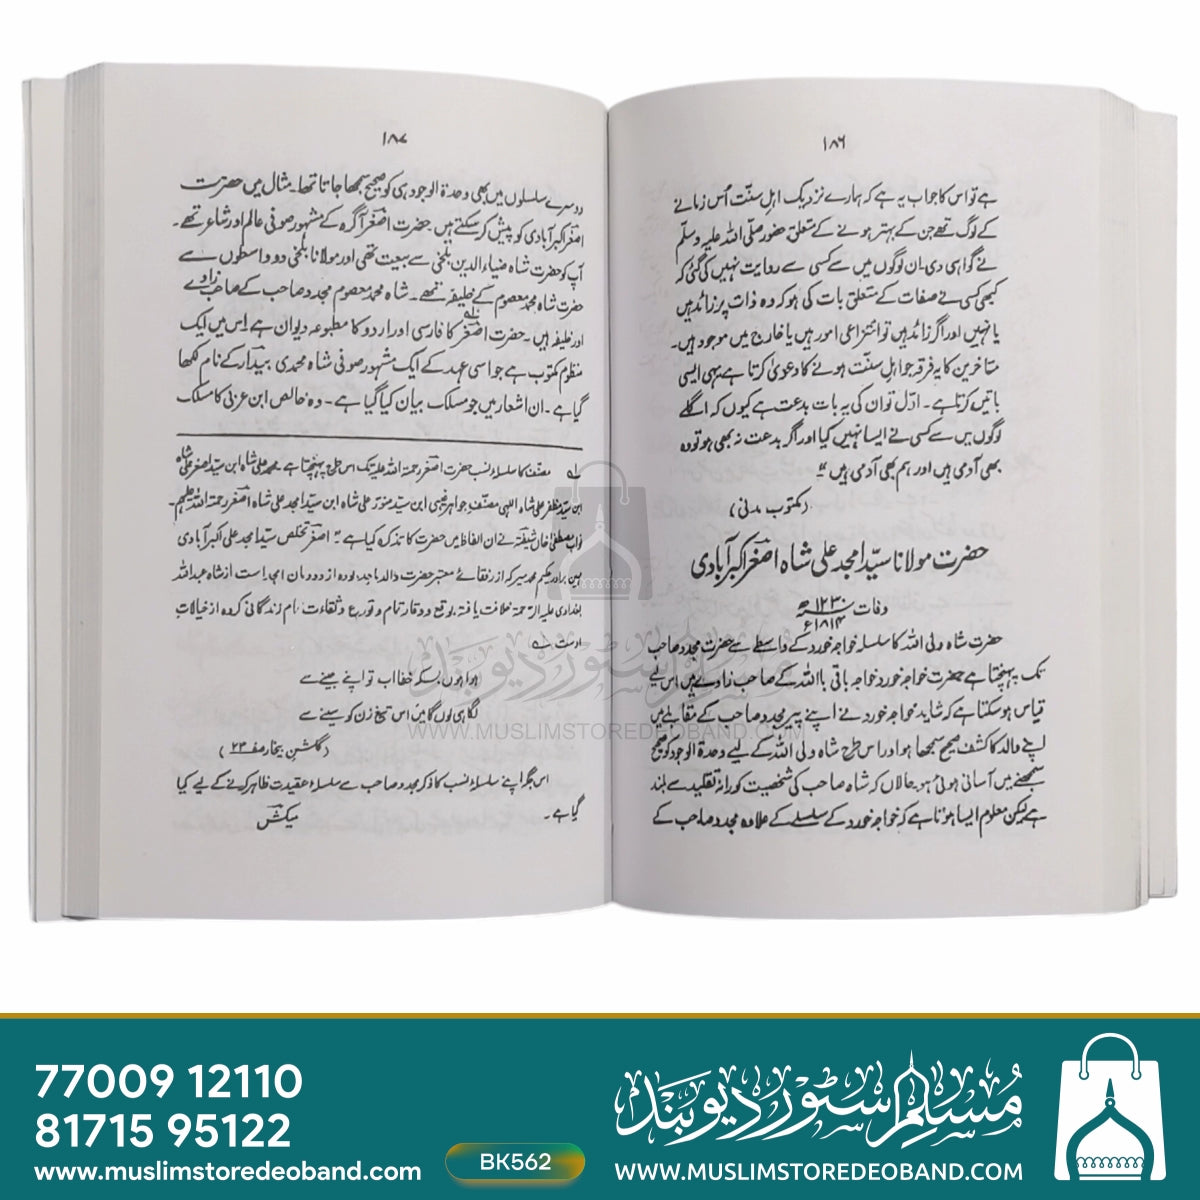 ۱۸۶
ہے تو اس کا جواب یہ ہے کہ ہمارے نزدیک اہلِ سنّت اُس زمانے
کے لوگ تھے جن کے بہتر ہونے کے متعلق حضور صلّی اللہ علیہ وسلّم
نے گواہی دی۔ ان لوگوں میں سے کسی سے روایت نہیں کی گئی کہ
کبھی کسی نے صفات کے متعلق بات کی ہو کہ وہ ذات پر زائد ہیں
یا نہیں اور اگر زائد ہیں تو انتزاعی امور ہیں یا خارج میں موجود ہیں۔
متاخرین کا یہ فرقہ جو اہلِ سنّت ہونے کا دعویٰ کرتا ہے یہی ایسی
باتیں کرتا ہے۔ اوّل تو ان کی یہ بات بدعت ہے کیوں کہ اگلے
لوگوں میں سے کسی نے ایسا نہیں کیا اور اگر بدعت نہ بھی ہو تو وہ
بھی آدمی ہیں اور ہم بھی آدمی ہیں"
(مکتوب مدنی)
حضرت مولانا سیّد امجد علی شاہ اصغر اکبرآبادی
وفات ۱۲۳۰ھ
۱۸۱۴ء
حضرت شاہ ولی اللہ کا سلسلہ خواجہ خورد کے واسطے سے حضرت مجدد صاحب
تک پہنچتا ہے حضرت خواجہ خورد خواجہ باقی باللہ کے صاحب زادے ہیں اس لیے
قیاس ہو سکتا ہے کہ شاید خواجہ خورد نے اپنے پیر مجدد صاحب کے مقابلے میں
اپنے والد کا کشف صحیح سمجھا ہو اور اس طرح شاہ ولی اللہ کے لیے وحدۃ الوجود کو صحیح
سمجھنے میں آسانی ہوئی ہو۔ حالاں کہ شاہ صاحب کی شخصیت کورانہ تقلید سے بلند
ہے لیکن معلوم ایسا ہوتا ہے کہ خواجہ خورد کے سلسلے کے علاوہ مجدد صاحب کے
۱۸۷
دوسرے سلسلوں میں بھی وحدۃ الوجود ہی کو صحیح سمجھا جاتا تھا۔ مثال میں حضرت
اصغر اکبرآبادی کو پیش کر سکتے ہیں۔ حضرت اصغر آگرہ کے مشہور صوفی عالم اور شاعر تھے۔
آپ کو حضرت شاہ ضیاء الدین بلخی سے بیعت تھی اور مولانا بلخی دو واسطوں سے
حضرت شاہ محمد معصوم کے خلیفہ تھے۔ شاہ محمد معصوم مجدد صاحب کے صاحب زادے
اور خلیفہ ہیں۔ حضرت اصغر کا فارسی اور اردو کا مطبوعہ دیوان ہے اس میں ایک
منظوم مکتوب ہے جو اسی عہد کے ایک مشہور صوفی شاہ محمدی بیدار کے نام لکھا
گیا ہے۔ ان اشعار میں جو مسلک بیان کیا گیا ہے۔ وہ خالص ابن عربی کا مسلک
لہ مصنف کا سلسلۂ نسب حضرت اصغر رحمۃ اللہ علیہ تک اس طرح پہنچتا ہے محمد علی شاہ ابن سیّد اصغر علی شاہ
ابن سیّد مظفر علی شاہ اللہی مصنف جواہر غیبی ابن سیّد منوّر علی شاہ ابن سیّد امجد علی شاہ اصغر رحمۃ اللہ علیہم۔
نواب مصطفیٰ خاں شیفتہ نے ان الفاظ میں حضرت کا تذکرہ کیا ہے "اصغر تخلص سیّد امجد علی اکبرآبادی
برادر حکیم محمد میر کہ از رفقائے معتبر حضرت والد ماجد بودہ از دودمان امجد است از شاہ عبداللہ
بغدادی علیہ الرحمۃ خلافت یافتہ بوقع و وقار تمام و تورع و ثقاہت نام زندگانی کردہ از خیالات
اوست
ہوا ہوں بسکہ خفا اب تو اپنے جینے سے
لگا ہی لوں گا میں اس تیغ زن کو سینے سے
(گلشن بیخار صفحہ ۲۳)
اس جگہ اپنے سلسلۂ نسب کا ذکر مجدد صاحب سے سلسلۂ عقیدت ظاہر کرنے کے لیے کیا
گیا ہے۔ میکش
مسلم سٹور دیوبند
WWW.MUSLIMSTOREDEOBAND.COM
77009 12110
81715 95122
www.muslimstoredeoband.com
BK562
مسلم سٹور دیوبند
WWW.MUSLIMSTOREDEOBAND.COM